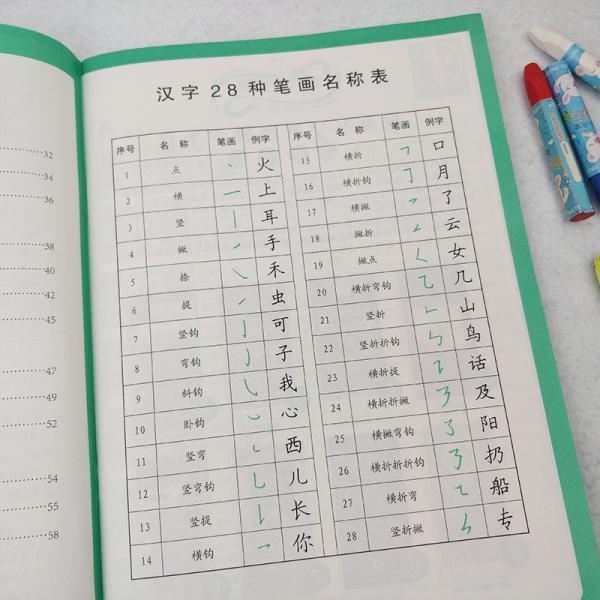 32
34
36
38
40
42
45
47
49
52
54
55
58
汉字28种笔画名称表
序号 名称 笔画 例字
1 点 ㇔ 火
2 横 ㇐ 上
3 竖 ㇑ 耳
4 撇 ㇒ 手
5 捺 ㇏ 禾
6 提 ㇀ 虫
7 竖钩 ㇚ 可
8 弯钩 ㇁ 子
9 斜钩 ㇂ 我
10 卧钩 ㇃ 心
11 竖弯 ㇄ 西
12 竖弯钩 ㇟ 儿
13 竖提 ㇙ 长
14 横钩 ㇖ 你
序号 名称 笔画 例字
15 横折 ㇕ 口
16 横折钩 ㇆ 月
17 横撇 ㇇ 了
18 撇折 ㇜ 云
19 撇点 ㇛ 女
20 横折弯钩 ㇈ 几
21 竖折 ㇗ 山
22 竖折折钩 ㇉ 鸟
23 横折提 ㇊ 话
24 横折折撇 ㇋ 及
25 横撇弯钩 ㇌ 阳
26 横折折折钩 ㇡ 扔
27 横折弯 ㇍ 船
28 竖折撇 ㇞ 专